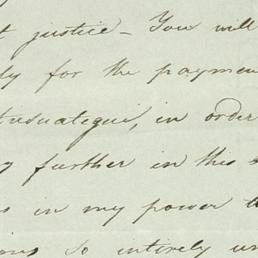 t justice - You will
ly for the paymen
in order
y further in this s
s in my power t
ions so entirely un